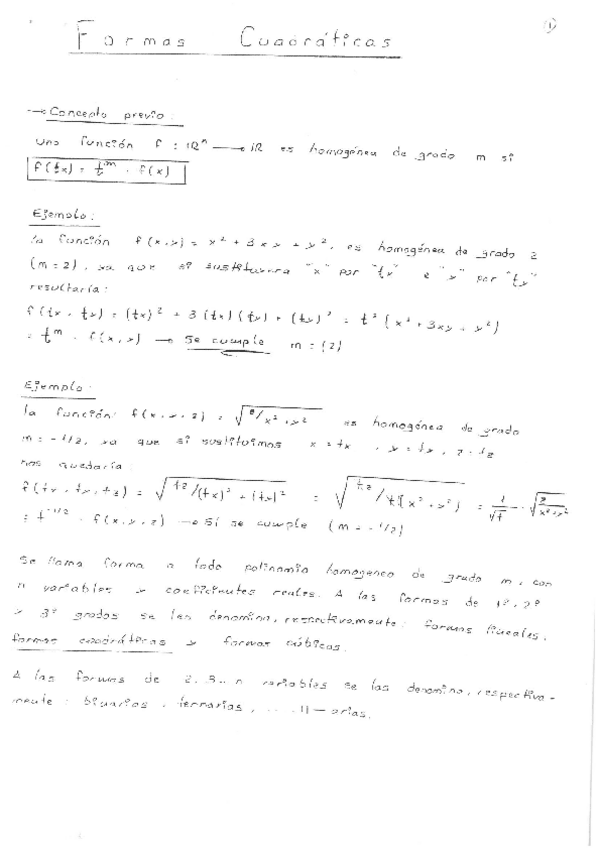 1
Formas Cuadráticas
→ Concepto previo:
una función f : IRⁿ → IR es homogénea de grado m si
f(tx) = t^m . f(x)
Ejemplo:
la función f(x,y) = x² + 3xy + y², es homogénea de grado 2
(m=2), ya que si sustituyera "x" por "tx" e "y" por "ty"
resultaría:
f(tx, ty) = (tx)² + 3(tx)(ty) + (ty)² = t²(x² + 3xy + y²)
= t^m . f(x,y) → Se cumple m = (2)
Ejemplo:
la función: f(x,y,z) = √(z/x²+y²) es homogénea de grado
m = -1/2, ya que si sustituimos x=tx, y=ty, z=tz
nos quedaría:
f(tx, ty, tz) = √(tz/(tx)²+(ty)²) = √(tz/t²(x²+y²)) = 1/√t · √(z/x²+y²)
= t^-1/2 . f(x,y,z) → Sí se cumple (m = -1/2)
Se llama forma a todo polinomio homogeneo de grado m, con
n variables y coeficientes reales. A las formas de 1º, 2º
y 3º grados se les denomina, respectivamente: formas lineales,
formas cuadráticas y formas cúbicas.
A las formas de 2, 3..n variables se las denomina, respectiva-
mente: binarias, ternarias, ....n-arias.